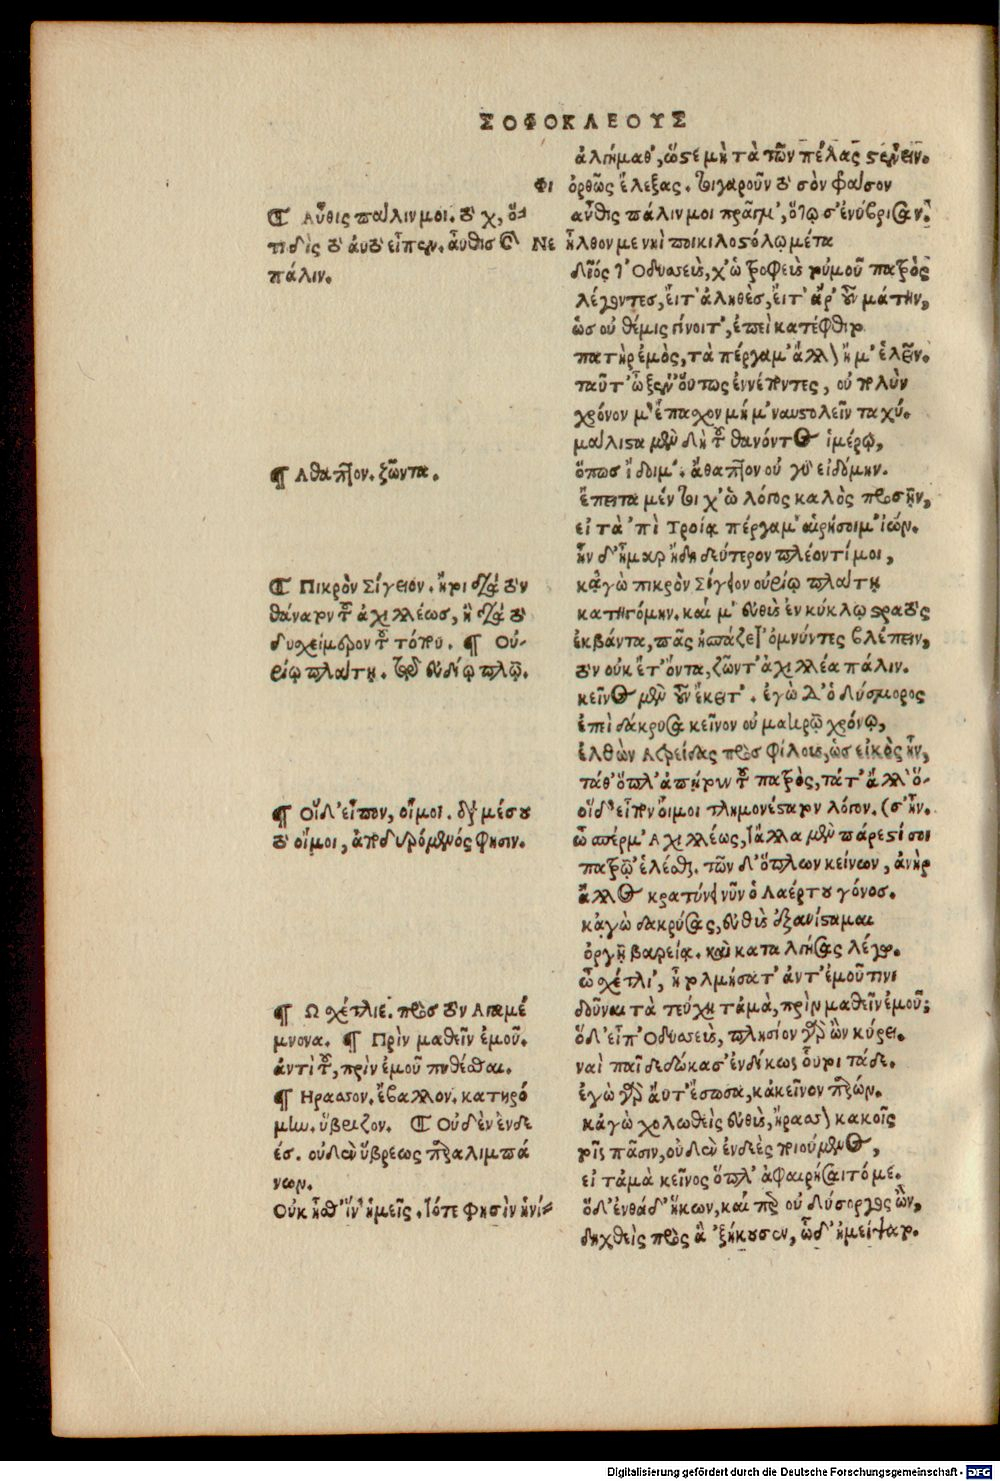 ΣΟΦΟΚΛΕΟΥΣ
¶ Αὖθις πάλιν μοι. οὐχ, ὅ-
τι δὶς οὐ ἀνθ' εἶπεν. αὖθις
πάλιν.
¶ Ἄθαπτον. ζῶντα.
¶ Πικρὸν Σίγειον. ἤτοι διὰ τὸν
θάνατον τοῦ ἀχιλλέως, ἢ διὰ τὸ
δυσχείμερον τοῦ τόπου. ¶ Οὐ-
ρίῳ πλάτῃ. τῷ εὐδίῳ πλῷ.
¶ Οἵδ' εἶπον, οἴμοι. διὰ μέσου
τὸ οἴμοι, ἀποδυρόμενός φησιν.
¶ Ὦ σχέτλιε. πρὸς τὸν Ἀγαμέ
μνονα. ¶ Πρὶν μαθεῖν ἐμοῦ.
ἀντὶ τοῦ, πρὶν ἐμοῦ πυθέσθαι.
¶ Ἤρασσον. ἔβαλλον. κατηρό
μην. ὕβριζον. ¶ Οὐδὲν ἐνδε
ές. οὐδὲν ὕβρεως παραλιμπά
νων.
Οὐκ ἦσθ' ἵν' ἡμεῖς. τότε φησὶν ἡνί-
ἀλγήμαθ', ὥστε μὴ τὰ τῶν πέλας στένειν.
Φι ὀρθῶς ἔλεξας. τοιγαροῦν τὸ σὸν φράσον
αὖθις πάλιν μοι πρᾶγμ', ὅτῳ σ' ἐνύβρισαν.
Νε ἦλθόν με νηῒ ποικιλοστόλῳ μέτα
δῖός τ' Ὀδυσσεὺς, χ' ὡ τροφεὺς τοὐμοῦ πατρὸς
λέγοντες, εἴτ' ἀληθὲς, εἴτ' ἄρ' οὖν μάτην,
ὡς οὐ θέμις γίνοιτ', ἐπεὶ κατέφθιτο
πατὴρ ἐμὸς, τὰ πέργαμ' ἄλλον ἤ μ' ἑλεῖν.
ταῦτ' ὦ ξέν' οὕτως ἐννέποντες, οὐ πολὺν
χρόνον μ' ἐπέσχον μή μ' ναυστολεῖν ταχύ.
μάλιστα μὲν δὴ τοῦ θανόντος ἱμέρῳ,
ὅπως ἴδοιμ' ἄθαπτον οὐ γὰρ εἰδόμην.
ἔπειτα μέν τοι χ' ὠ λόγος καλὸς προσῆν,
εἰ τἀ 'πὶ Τροίᾳ πέργαμ' αἱρήσοιμ' ἰών.
ἦν δ' ἦμαρ ἤδη δεύτερον πλέοντί μοι,
κἀγὼ πικρὸν Σίγειον οὐρίῳ πλάτῃ
κατηγόμην. καί μ' εὐθὺς ἐν κύκλῳ στρατὸς
ἐκβάντα, πᾶς ἠσπάζετ' ὀμνύντες βλέπειν,
τὸν οὐκ ἔτ' ὄντα, ζῶντ' ἀχιλλέα πάλιν.
κεῖνος μὲν οὖν ἔκειτ'. ἐγὼ δ' ὁ δύσμορος
ἐπεὶ δάκρυσα κεῖνον οὐ μακρῷ χρόνῳ,
ἐλθὼν Ἀτρείδας πρὸς φίλους, ὡς εἰκὸς ἦν,
τάθ' ὅπλ' ἀπῄτουν τοῦ πατρὸς, τάτ' ἄλλ' ὅ-
οἵδ' εἶπον οἴμοι τλημονέστατον λόγον. (σ' ἦν.
ὦ σπέρμ' Ἀχιλλέως, τἄλλα μὲν πάρεστί σοι
πατρῷ' ἑλέσθαι. τῶν δ' ὅπλων κείνων, ἀνὴρ
ἄλλος κρατύνει νῦν ὁ Λαέρτου γόνος.
κἀγὼ δακρύσας, εὐθὺς ἐξανίσταμαι
ὀργῇ βαρείᾳ. καὶ καταλγήσας λέγω.
ὦ σχέτλι', ἦ τολμήσατ' ἀντ' ἐμοῦ τινι
δοῦναι τὰ τεύχη τἀμὰ, πρὶν μαθεῖν ἐμοῦ;
ὅδ' εἶπ' Ὀδυσσεὺς, πλησίον γὰρ ὢν κύρει.
ναὶ παῖ δεδώκασ' ἐνδίκως οὗτοι τάδε.
ἐγὼ γὰρ αὔτ' ἔσωσα, κἀκεῖνον παρών.
κἀγὼ χολωθεὶς εὐθὺς, ἤρασσον κακοῖς
τοῖς πᾶσιν, οὐδὲν ἐνδεὲς ποιούμενος,
εἰ τἀμὰ κεῖνος ὅπλ' ἀφαιρήσαιτό με.
ὅδ' ἐνθάδ' ἥκων, καί περ οὐ δύσοργος ὢν,
δηχθεὶς πρὸς ἃ 'ξήκουσεν, ὧδ' ἠμείψατο.
Digitalisierung gefördert durch die Deutsche Forschungsgemeinschaft - DFG